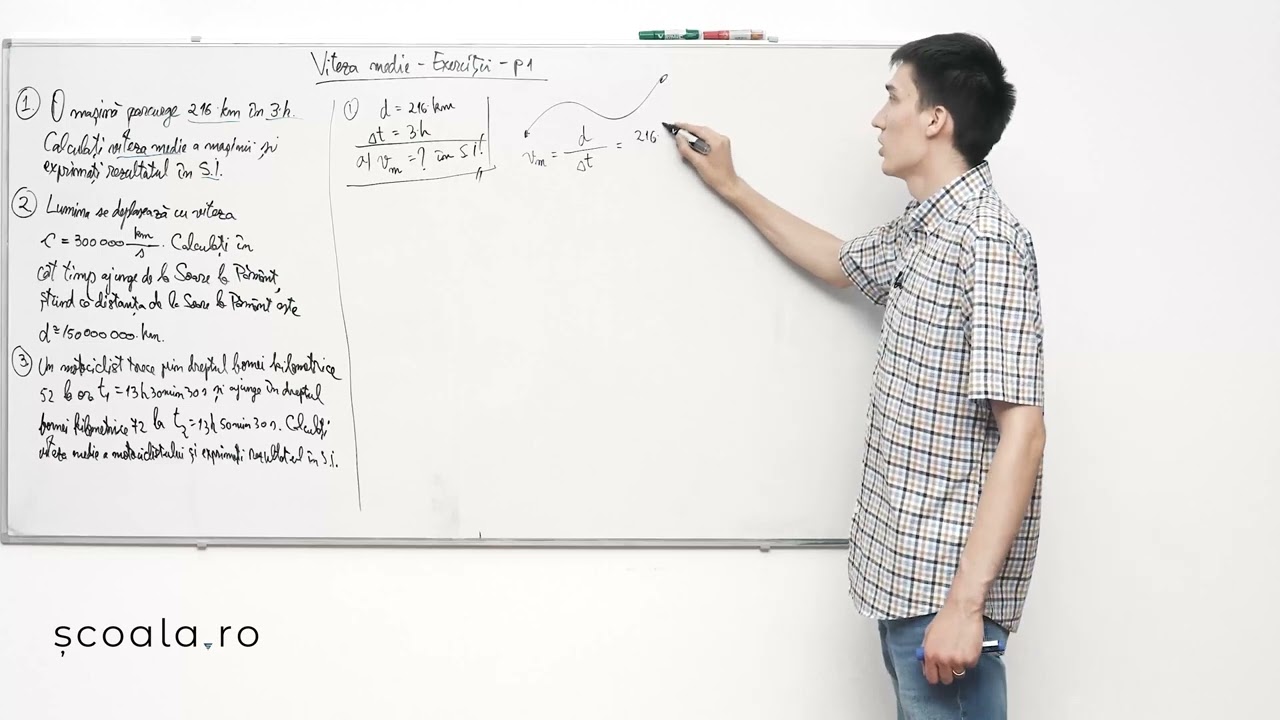 Viteza medie - Exerciții - p1
① O mașină parcurge 216 km în 3h.
Calculați viteza medie a mașinii și
exprimați rezultatul în S.I.
② Lumina se deplasează cu viteza
c = 300 000 km/s. Calculați în
cât timp ajunge de la Soare la Pământ,
știind că distanța de la Soare la Pământ este
d ≈ 150 000 000 km.
③ Un motociclist trece prin dreptul bornei kilometrice
52 la ora t₁ = 13h 30min 30s și ajunge în dreptul
bornei kilometrice 72 la t₂ = 13h 50min 30s. Calculați
viteza medie a motociclistului și exprimați rezultatul în S.I.
① d = 216 km
Δt = 3h
a) vₘ = ? în S.I.
vₘ = d/Δt = 216
școala.ro